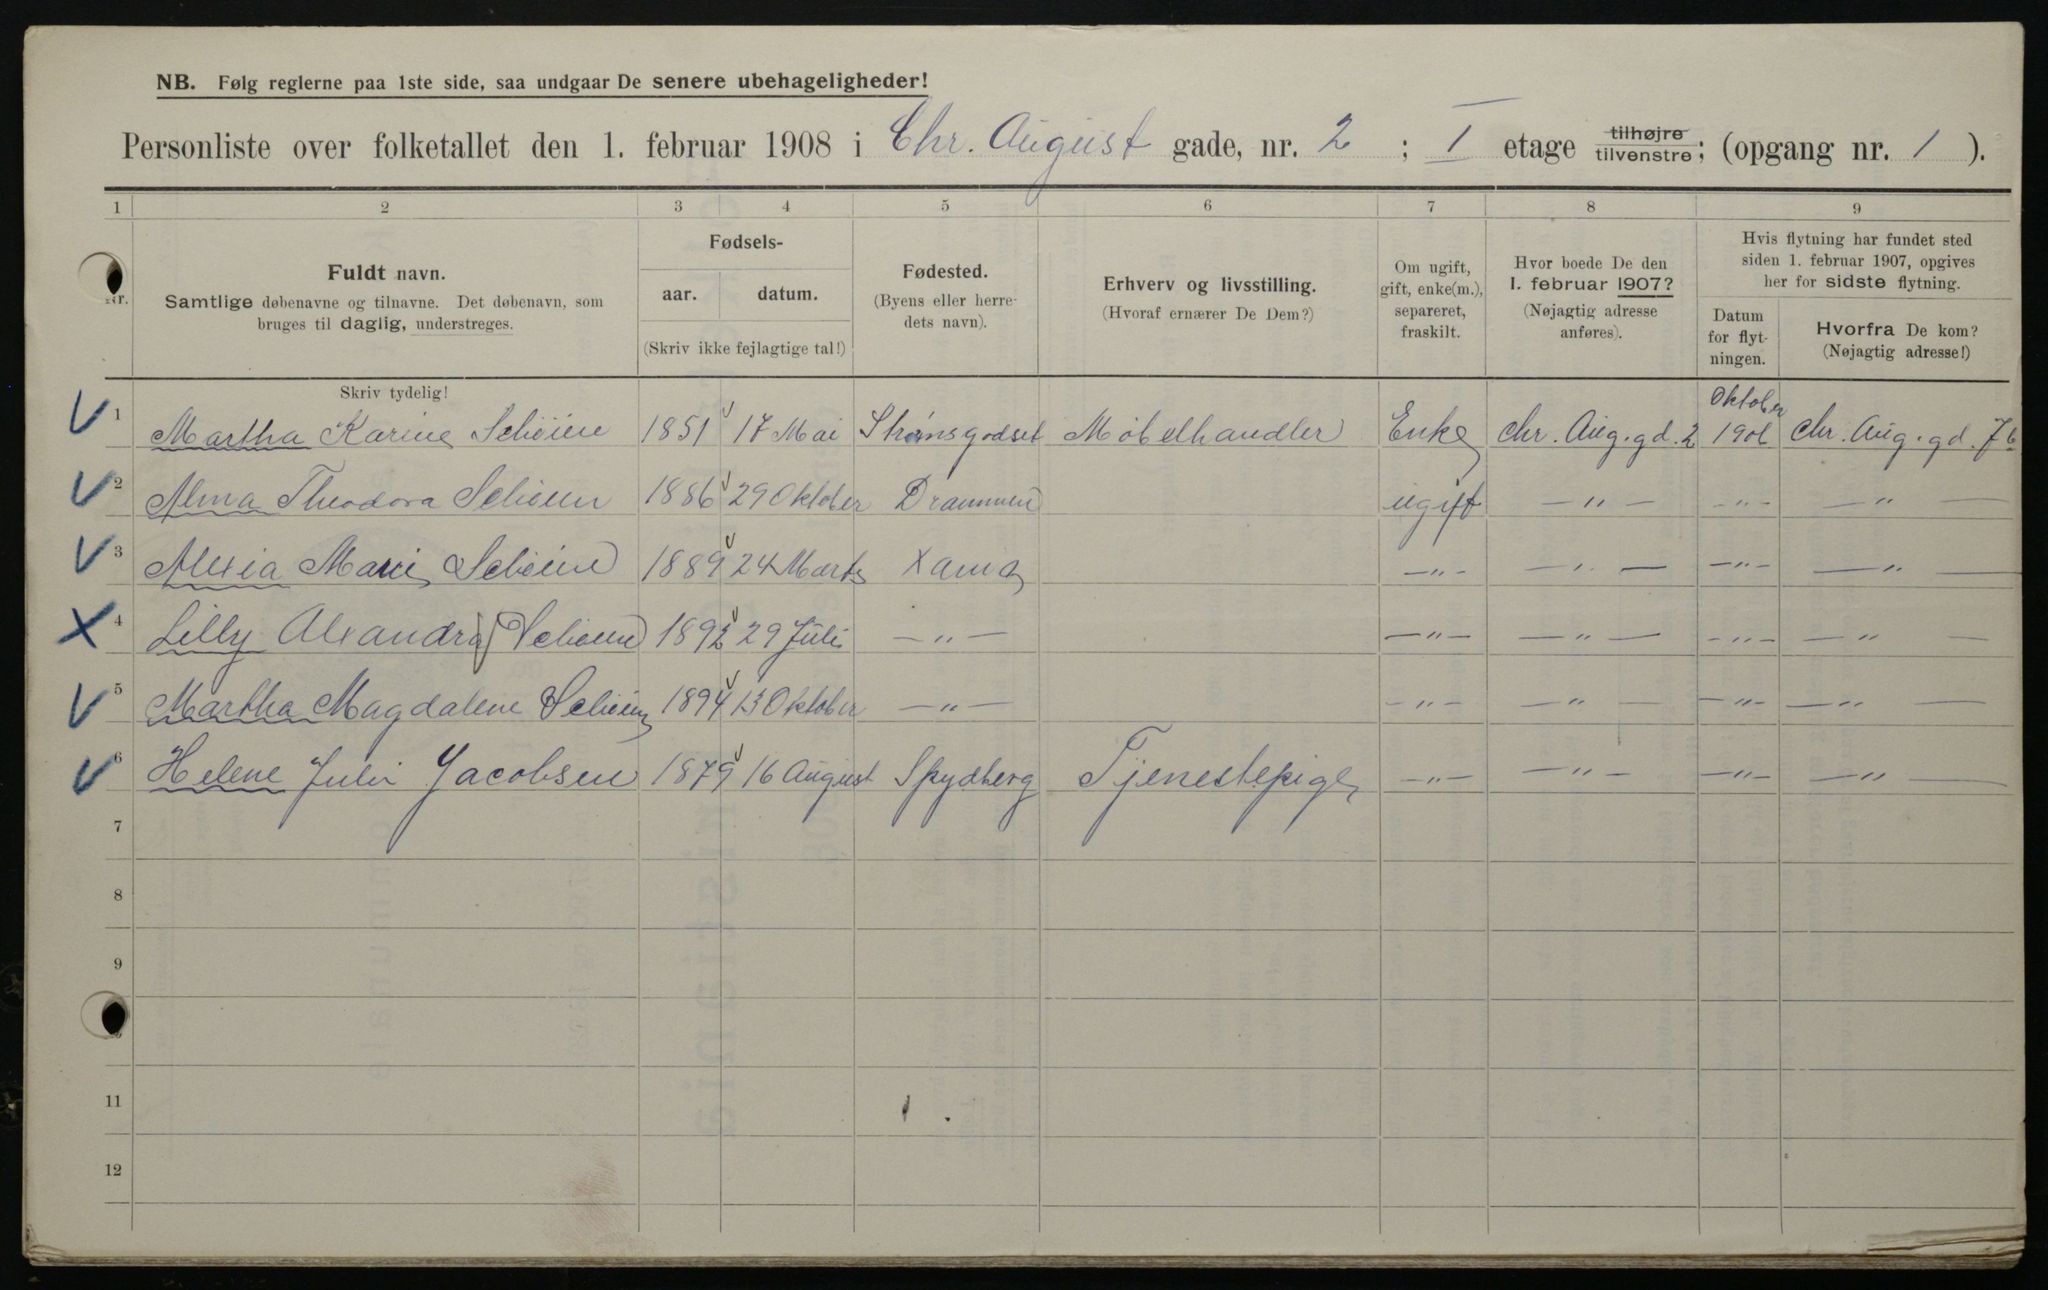 NB. Følg reglerne paa 1ste side, saa undgaar De senere ubehageligheder!
Personliste over folketallet den 1. februar 1908 i Chr. August gade, nr. 2 ; I etage tilhøjre/tilvenstre; (opgang nr. 1 ).
1 2 3 4 5 6 7 8 9
Nr. Fuldt navn. Samtlige døbenavne og tilnavne. Det døbenavn, som bruges til daglig, understreges.
Fødsels- aar. datum. (Skriv ikke fejlagtige tal!)
Fødested. (Byens eller herredets navn).
Erhverv og livsstilling. (Hvoraf ernærer De Dem?)
Om ugift, gift, enke(m.), separeret, fraskilt.
Hvor boede De den 1. februar 1907? (Nøjagtig adresse anføres).
Hvis flytning har fundet sted siden 1. februar 1907, opgives her for sidste flytning.
Datum for flytningen. Hvorfra De kom? (Nøjagtig adresse!)
Skriv tydelig!
1 Martha Karine Schøien 1851 17 Mai Strømsgodset Møbelhandler Enke Chr. Aug. gd. 2 Oktober 1906 Chr. Aug. gd. 7b
2 Alma Theodora Schøien 1886 29 Oktober Drammen ugift —"— —"— —"—
3 Alexia Marie Schøien 1889 24 Marts Xania —"— —"— —"— —"—
4 Lilly Alexandra Schøien 1892 29 Juli —"— —"— —"— —"— —"—
5 Martha Magdalene Schøien 1894 13 Oktober —"— —"— —"— —"— —"—
6 Helene Julie Jacobsen 1879 16 August Spydberg Tjenestepige —"— —"— —"— —"—
7
8
9
11
12